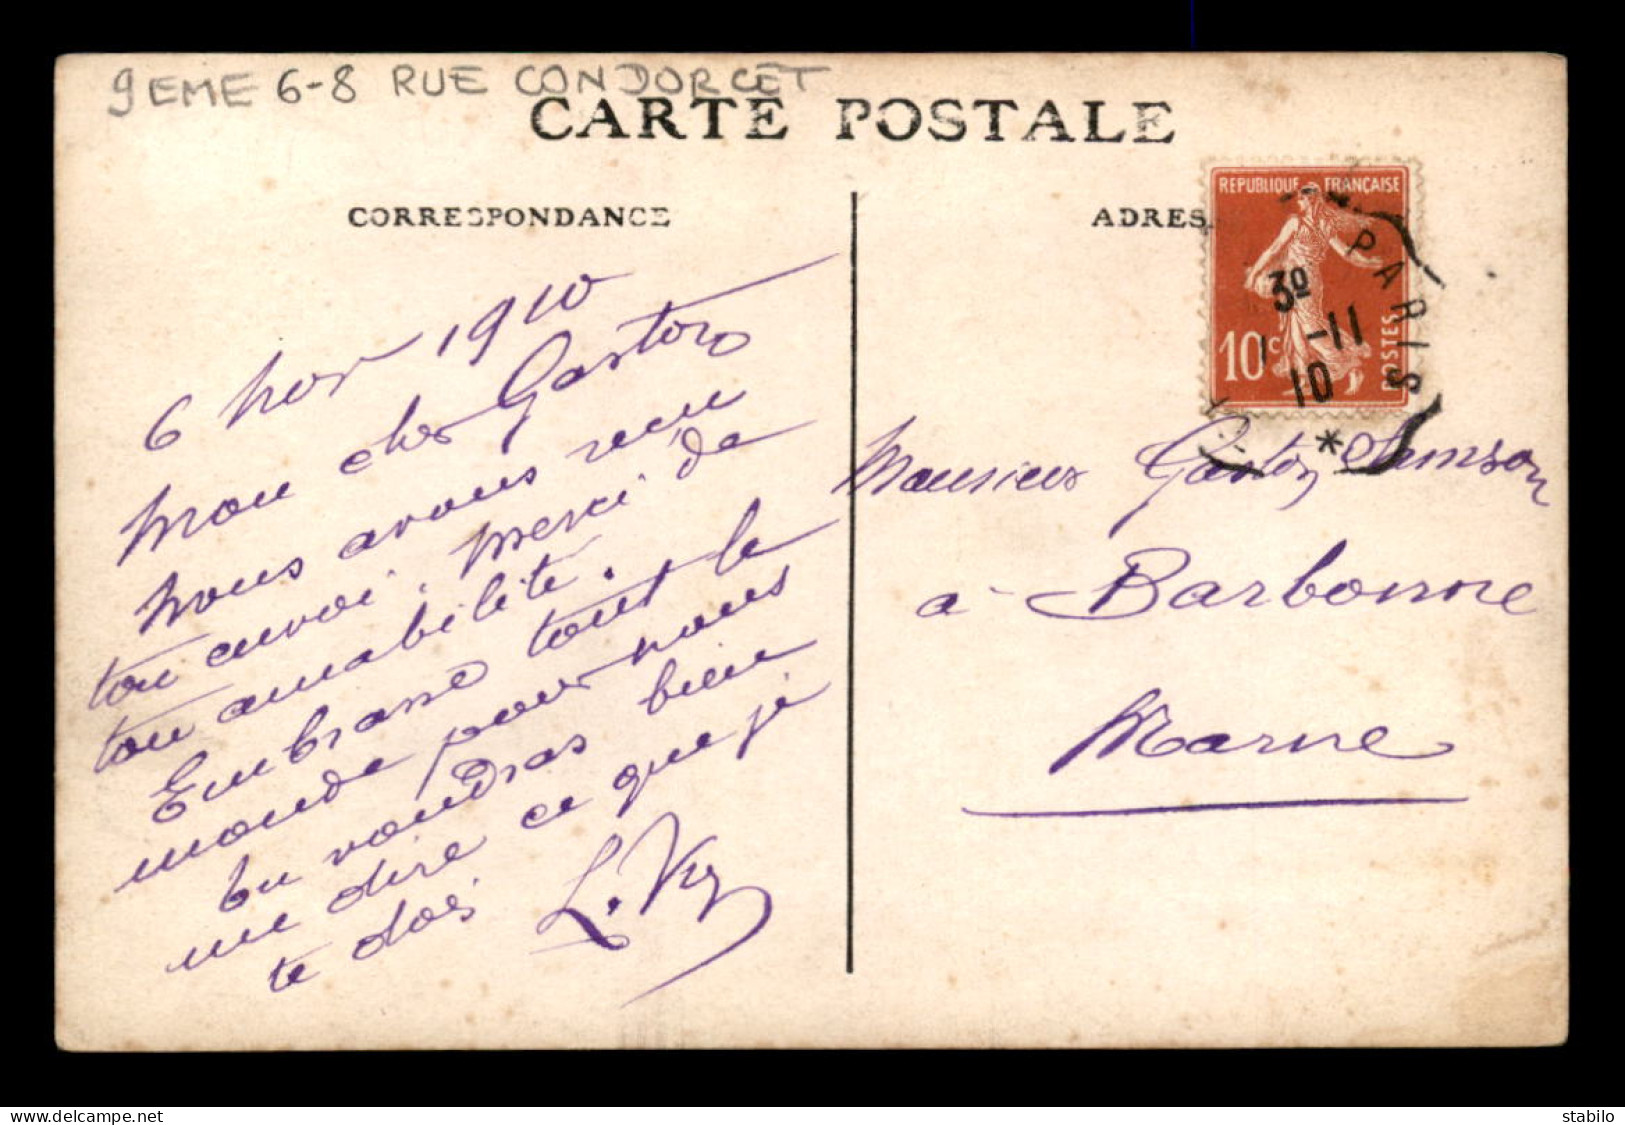 9EME 6-8 RUE CONDORCET
CARTE POSTALE
CORRESPONDANCE
6 Nov 1910
Mon cher Gaston
Nous avons reçu
ton envoi. Merci de
ton amabilité.
Embrasse tout le
monde pour nous
tu voudras bien
me dire ce que je
te dois
ADRES
REPUBLIQUE FRANÇAISE
10c
POSTES
PARIS
3º
-11
10
*
Monsieur Gaston Samson
à Barbonne
Marne
delcampe.net
stabilo